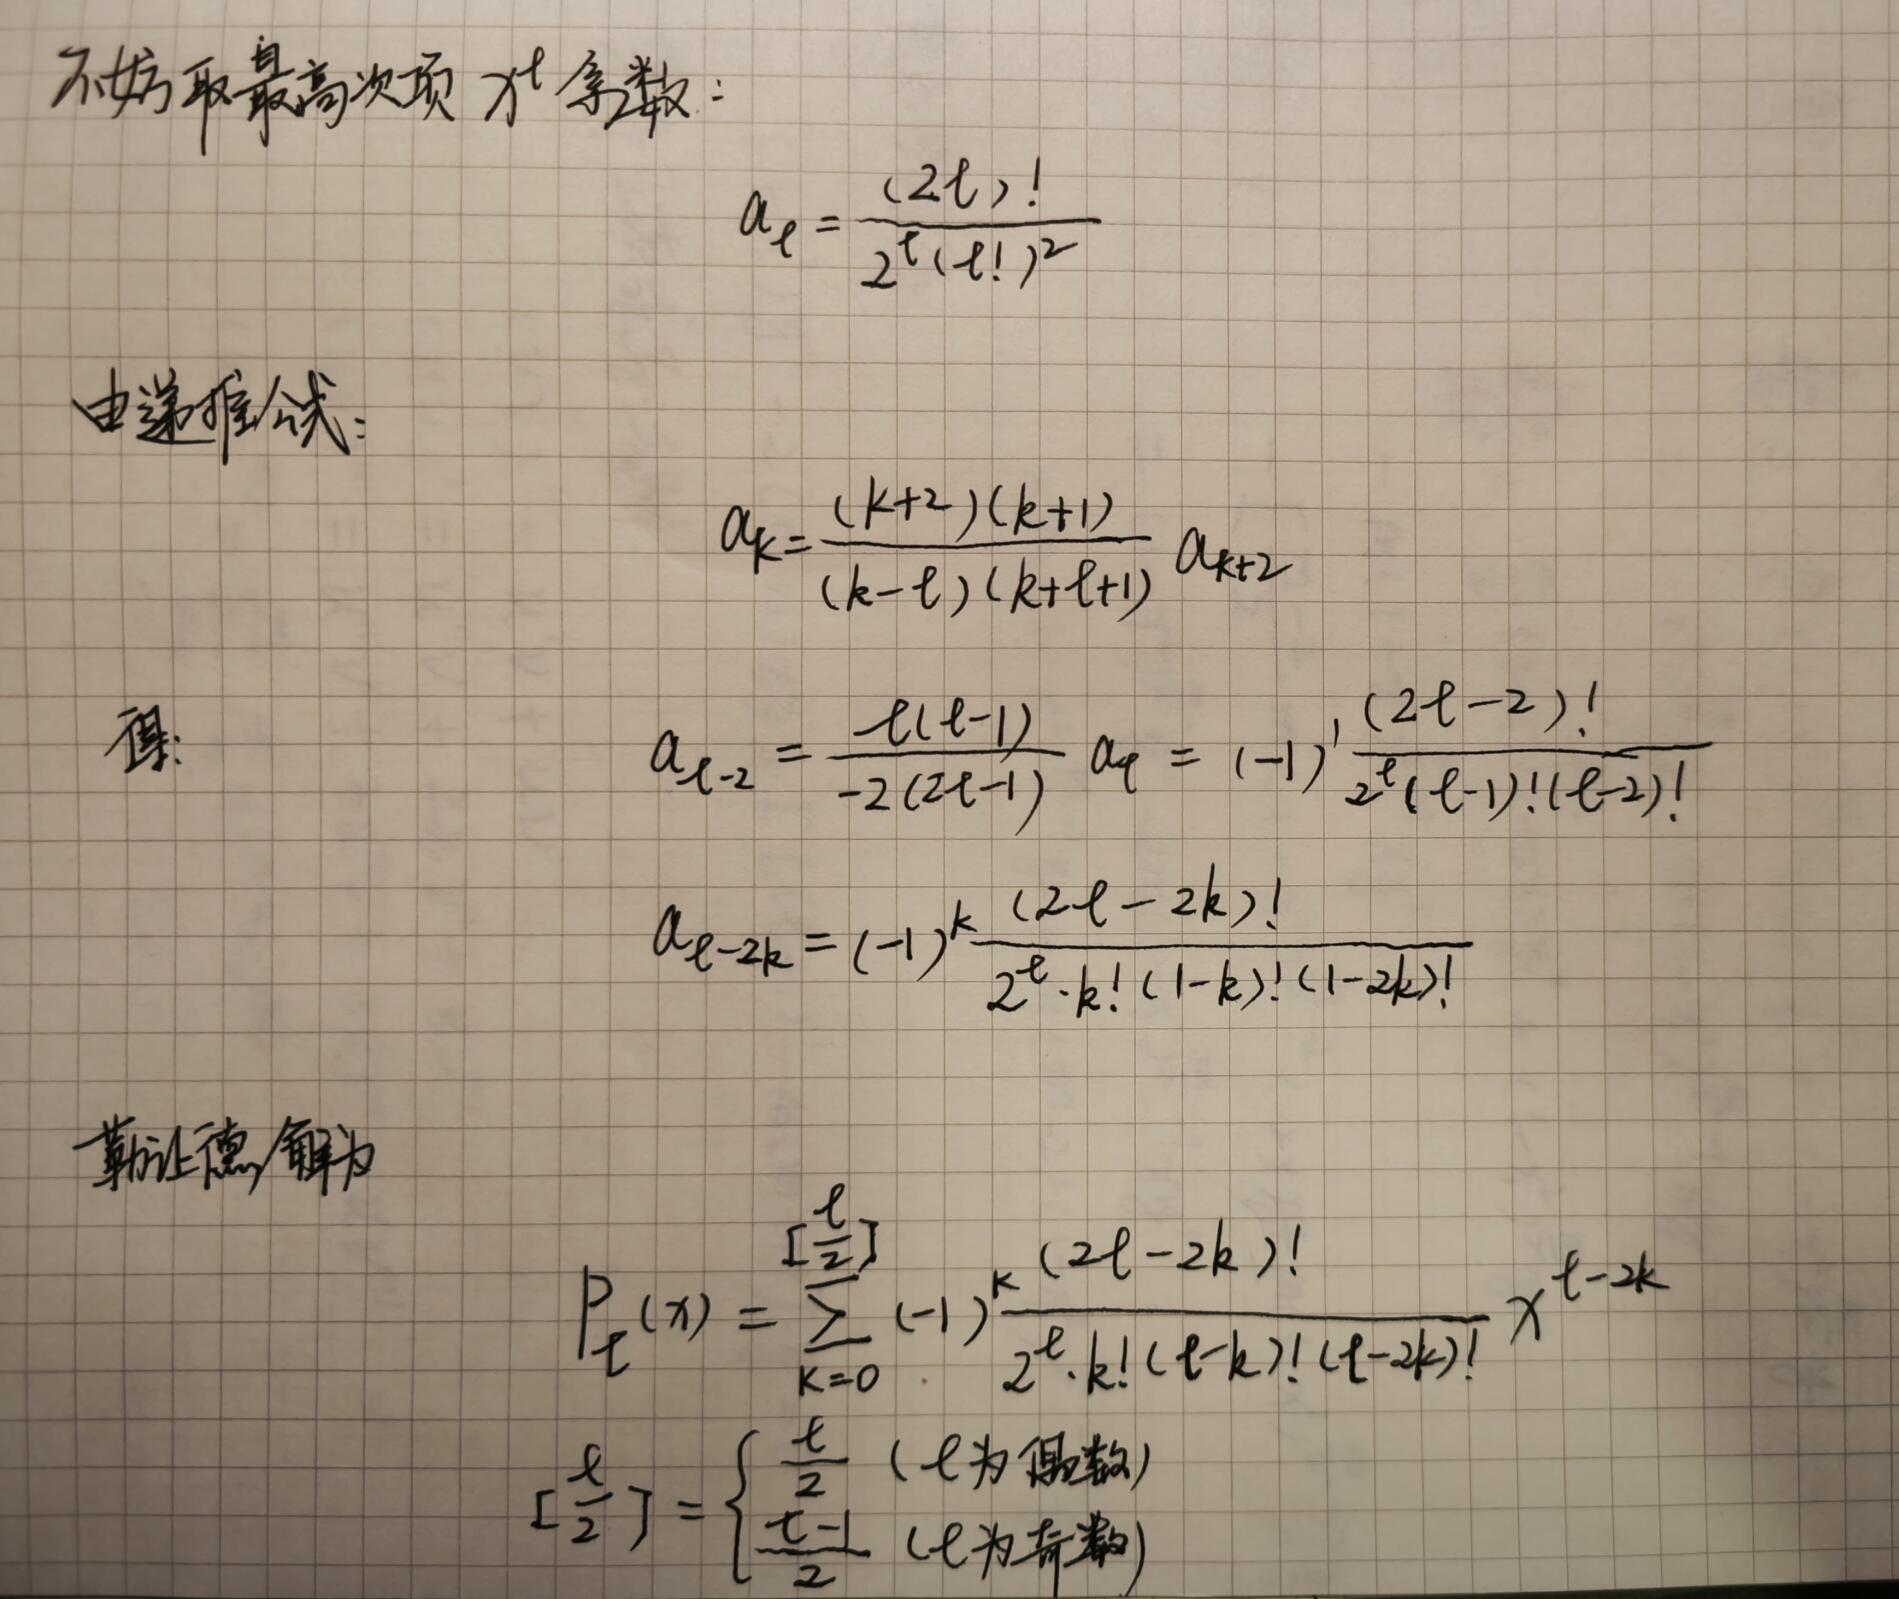 不妨取最高次项 x^ℓ 系数:
a_ℓ = \frac{(2ℓ)!}{2^ℓ(ℓ!)^2}
由递推公式:
a_k = \frac{(k+2)(k+1)}{(k-ℓ)(k+ℓ+1)} a_{k+2}
得: a_{ℓ-2} = \frac{ℓ(ℓ-1)}{-2(2ℓ-1)} a_ℓ = (-1)^1 \frac{(2ℓ-2)!}{2^ℓ(ℓ-1)!(ℓ-2)!}
a_{ℓ-2k} = (-1)^k \frac{(2ℓ-2k)!}{2^ℓ·k!(1-k)!(1-2k)!}
勒让德解为
P_ℓ(x) = \sum_{k=0}^{[\frac{ℓ}{2}]} (-1)^k \frac{(2ℓ-2k)!}{2^ℓ·k!(ℓ-k)!(ℓ-2k)!} x^{ℓ-2k}
[\frac{ℓ}{2}] = { \frac{ℓ}{2} (ℓ为偶数)
\frac{ℓ-1}{2} (ℓ为奇数)